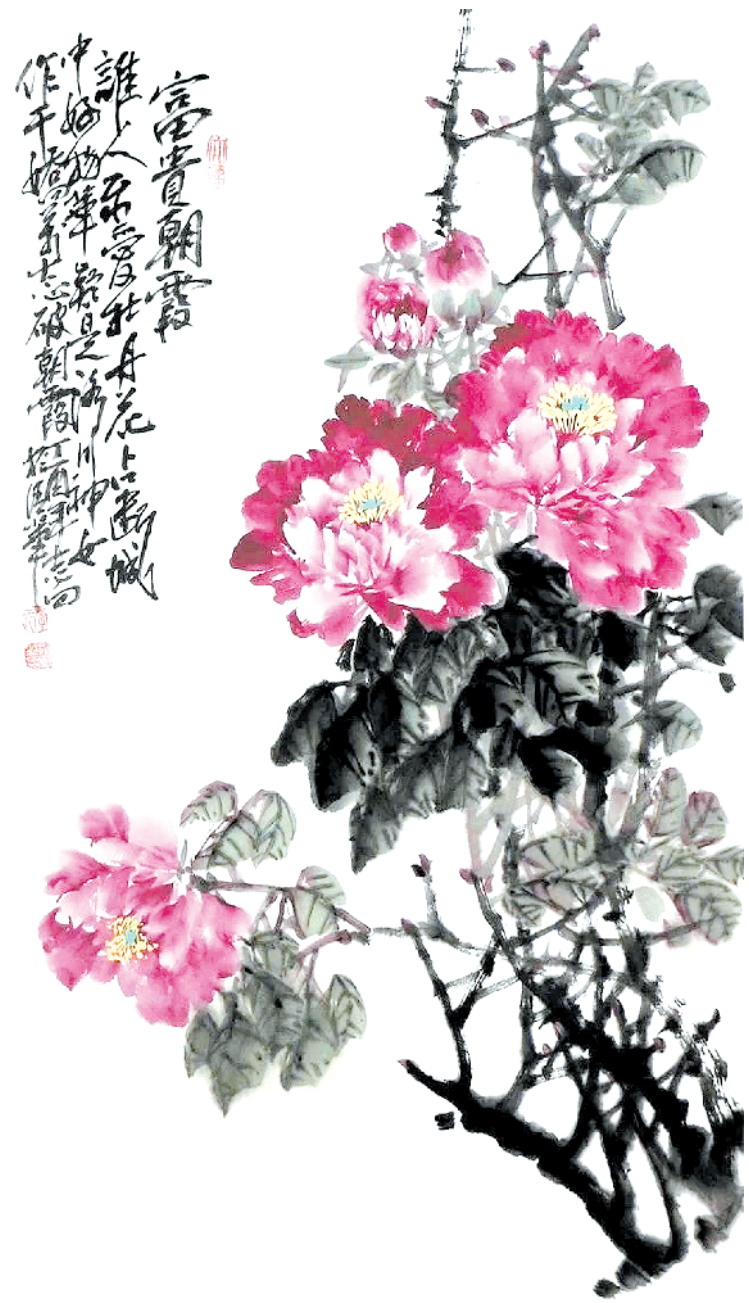 富貴朝霞
誰人不愛牡丹花占斷城
中好物華疑是洛川神女
作千嬌萬態破朝霞丁酉年